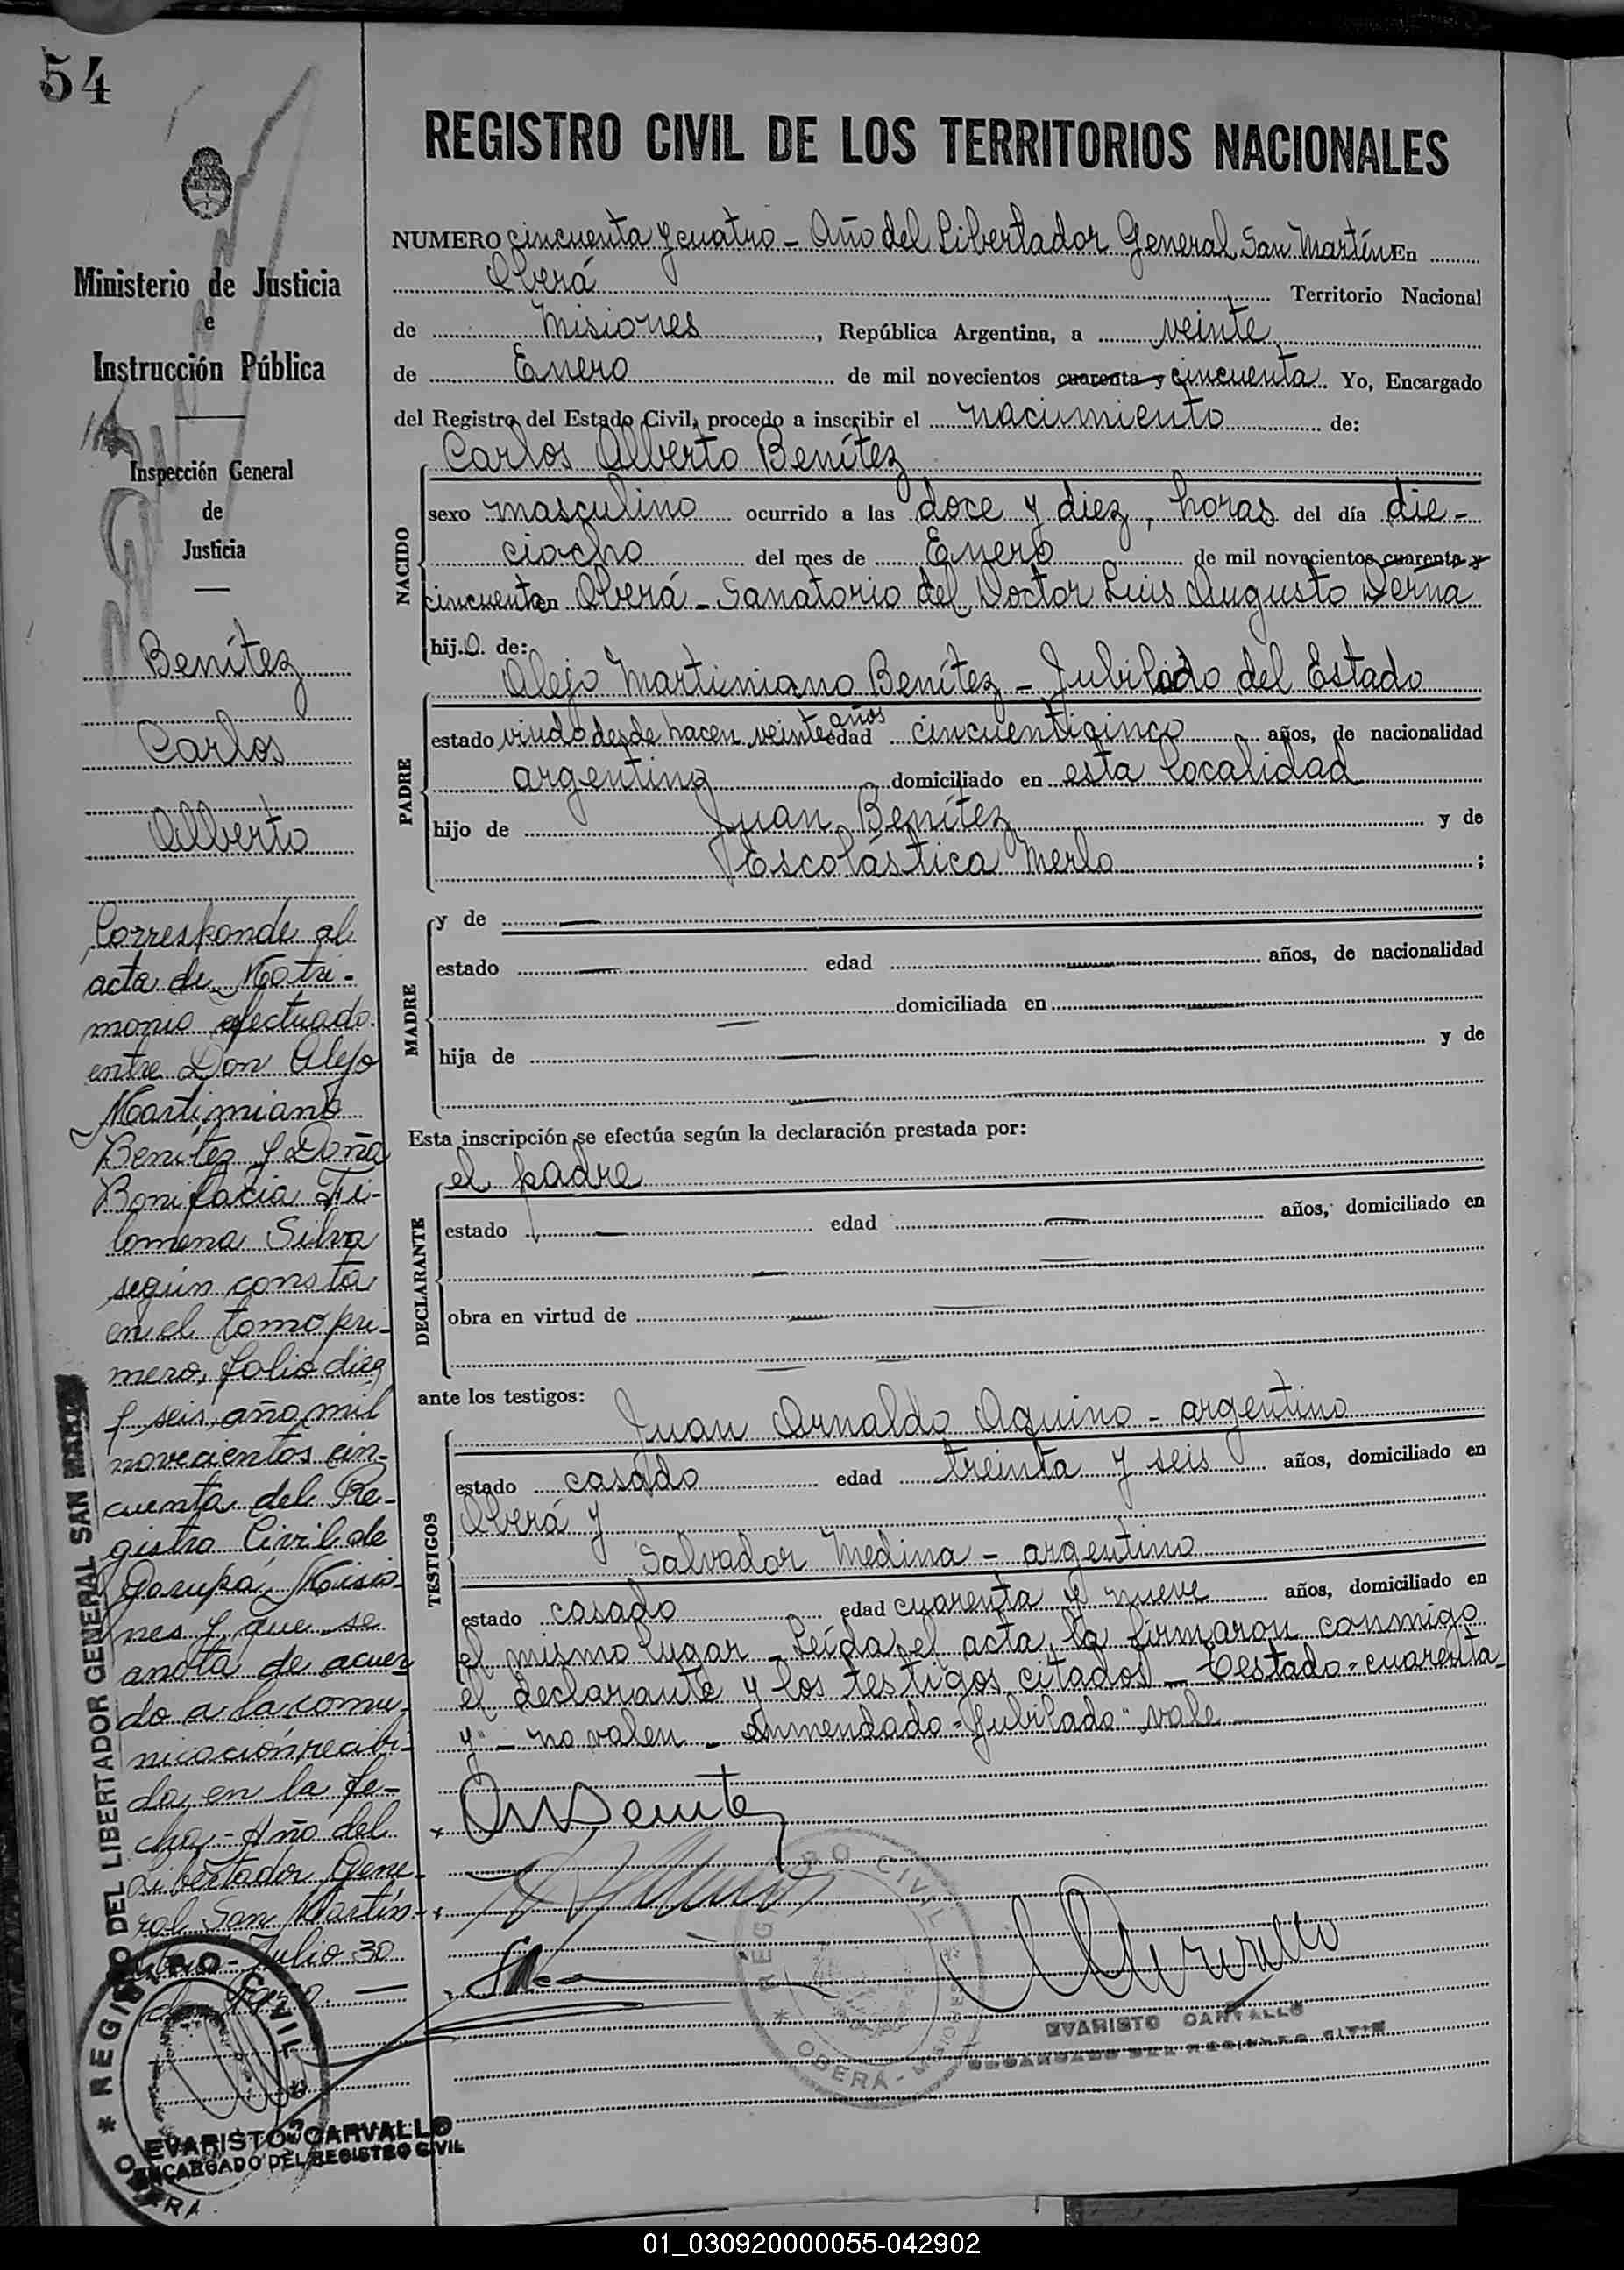 54
Ministerio de Justicia
e
Instrucción Pública
Inspección General
de
Justicia
Benítez
Carlos
Alberto
Corresponde al
acta de Matri-
monio efectuado
entre Don Alejo
Martimiano
Benítez y Doña
Bonifacia Fi-
lomena Silva
según consta
en el tomo pri-
mero, folio diez
y seis, año mil
novecientos cin-
cuenta del Re-
gistro Civil de
Garupá, Misio-
nes y que se
anota de acuer
do a la comu-
nicación recibi-
da en la fe-
cha - Año del
Libertador Gene-
ral San Martín -
Julio 30
AÑO DEL LIBERTADOR GENERAL SAN MARTIN
REGISTRO CIVIL
OBERA
EVARISTO CARVALLO
ENCARGADO DEL REGISTRO CIVIL
REGISTRO CIVIL DE LOS TERRITORIOS NACIONALES
NUMERO cincuenta y cuatro - Año del Libertador General San Martín En
Oberá Territorio Nacional
de Misiones, República Argentina, a veinte
de Enero de mil novecientos cuarenta y cincuenta Yo, Encargado
del Registro del Estado Civil, procedo a inscribir el nacimiento de:
Carlos Alberto Benítez
NACIDO
sexo masculino ocurrido a las doce y diez, horas del día die-
ciocho del mes de Enero de mil novecientos cuarenta y
cincuenta en Oberá - Sanatorio del Doctor Luis Augusto Derna
hijo de:
PADRE
Alejo Martiniano Benítez - Jubilado del Estado
estado viudo desde hacen veinte años edad cincuenticinco años, de nacionalidad
argentina domiciliado en esta localidad
hijo de Juan Benítez y de
Escolástica Merlo ;
MADRE
y de —
estado — edad — años, de nacionalidad
— domiciliada en —
hija de — y de
—
Esta inscripción se efectúa según la declaración prestada por:
el padre
DECLARANTE
estado — edad — años, domiciliado en
—
obra en virtud de —
—
ante los testigos:
TESTIGOS
Juan Arnaldo Aquino - argentino
estado casado edad treinta y seis años, domiciliado en
Oberá y
Salvador Medina - argentino
estado casado edad cuarenta y nueve años, domiciliado en
el mismo lugar - Leída el acta, la firmaron conmigo
el declarante y los testigos citados - Testado - cuarenta
y" - no valen - enmendado - "Jubilado" vale
REGISTRO CIVIL
OBERA - MISIONES
EVARISTO CARVALLO
ENCARGADO DEL REGISTRO CIVIL
01_030920000055-042902